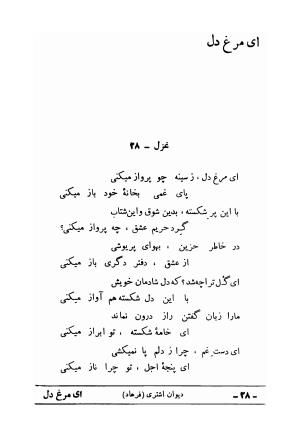 ای مرغ دل
غزل - ۲۸
ای مرغ دل، ز سینه چو پرواز میکنی
پای غمی بخانهٔ خود باز میکنی
با این پر شکسته، بدین شوق واین شتاب
گرد حریم عشق، چه پرواز میکنی؟
در خاطر حزین، بهوای پریوشی
از عشق، دفتر دگری باز میکنی
ای گل ترا چه شد؟ که دل شادمان خویش
با این دل شکسته هم آواز میکنی
مارا زبان گفتن راز درون نماند
ای خامهٔ شکسته، تو ابراز میکنی
ای دست غم، چرا ز دلم پا نمیکشی
ای پنجهٔ اجل، تو چرا ناز میکنی
- ۲۸ - دیوان اشتری (فرهاد) ای مرغ دل